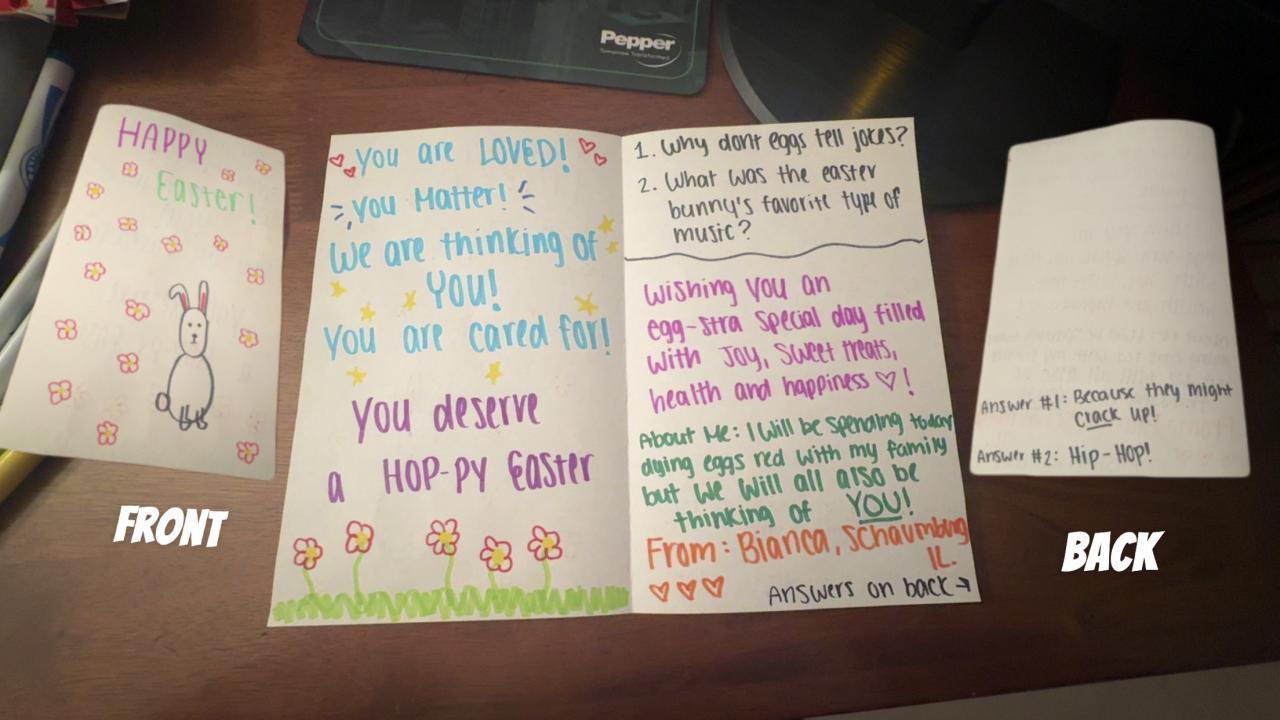 Pepper
Tomorrow Transformed
HAPPY
Easter!
FRONT
You are LOVED!
You Matter!
We are thinking of
YOU!
You are cared for!
You deserve
a HOP-PY Easter
1. Why dont eggs tell jokes?
2. What was the easter
bunny's favorite type of
music?
Wishing you an
egg-stra special day filled
with Joy, sweet treats,
health and happiness ♡!
About Me: I will be spending today
dying eggs red with my family
but we will all also be
thinking of YOU!
From: Bianca, Schaumburg
IL.
Answers on back →
Answer #1: Because they might
crack up!
Answer #2: Hip-Hop!
BACK